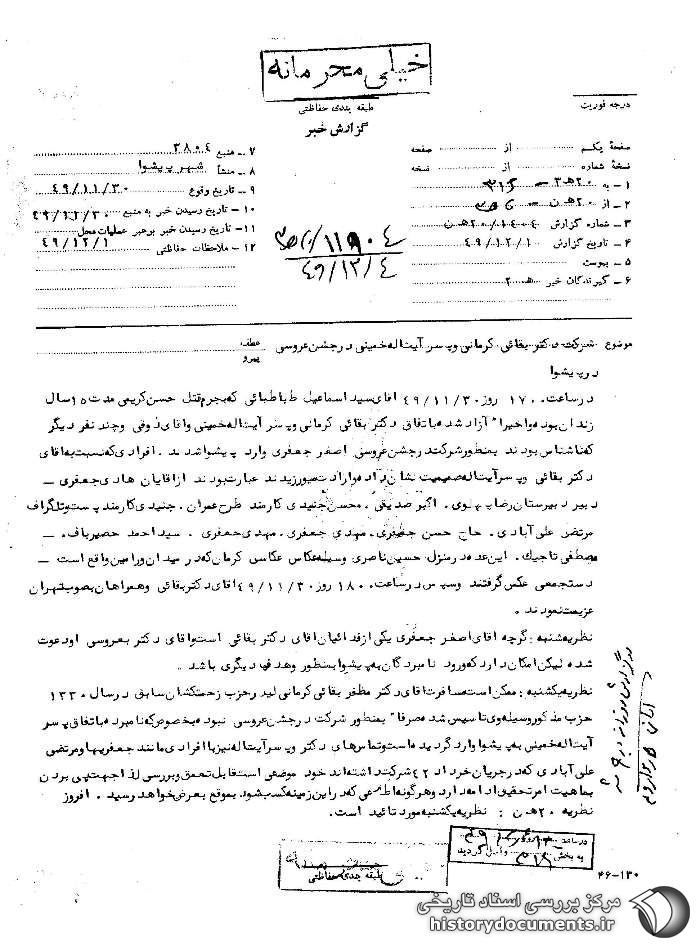 خیلی محرمانه
طبقه بندی حفاظتی
گزارش خبر
درجه فوریت
صفحهٔ یکم از صفحه
نسخهٔ شماره از نسخه
۱ – به ۲۰هـ۳ – ۳۱۲
۲ – از ۲۰هـن –
۳ – شماره گزارش ۲۰/۱۴۰۴هـن
۴ – تاریخ گزارش ۴۹/۱۲/۱۰
۵ – پیوست
۶ – گیرندگان خبر هـ ۲
۷ – منبع ۳۸۰۴
۸ – منشأ شهر پیشوا
۹ – تاریخ وقوع ۴۹/۱۱/۳۰
۱۰ – تاریخ رسیدن خبر به منبع ۴۹/۱۱/۳۰
۱۱ – تاریخ رسیدن خبر برهبر عملیات محل ۴۹/۱۲/۱
۱۲ – ملاحظات حفاظتی
۱۱۹۰۴
۴۹/۱۲/۴
موضوع شرکت دکتر بقائی کرمانی و پسر آیت اله خمینی در جشن عروسی
عطف
پیرو
در پیشوا
در ساعت ۱۷۰ روز ۴۹/۱۱/۳۰ اقای سید اسماعیل طباطبائی که بجرم قتل حسن کریمی مدت ۱۰ سال
زندان بوده و اخیرا" آزاد شده باتفاق دکتر بقائی کرمانی و پسر آیت اله خمینی و اقای ذوقی و چند نفر دیگر
که ناشناس بودند بمنظور شرکت در جشن عروسی اصغر جعفری وارد پیشوا شدند . افرادی که نسبت به اقای
دکتر بقائی و پسر آیت اله صمیمیت نشان داده و ارادت میورزیدند عبارت بودند از اقایان هادی جعفری –
دبیر دبیرستان رضا پهلوی . اکبر صدیقی . محسن جنیدی کارمند طرح عمران . جنیدی کارمند پست و تلگراف
مرتضی علی آبادی . حاج حسن جعفری . مهدی جعفری . مهدی جعفری . سید احمد حصیرباف –
مصطفی تاجیک . این عده در منزل حسین ناصری وسیله عکاس عکاسی کرمان که در میدان ورامین واقع است –
دستجمعی عکس گرفتند و سپس در ساعت ۱۸۰ روز ۴۹/۱۱/۳۰ اقای دکتر بقائی و همراهان بصوب تهران
عزیمت نمودند .
نظریه شنبه : گرچه اقای اصغر جعفری یکی از فدائیان اقای دکتر بقائی است و اقای دکتر بعروسی او دعوت
شده لیکن امکان دارد که ورود نامبردگان به پیشوا بمنظور و هدف دیگری باشد .
نظریه یکشنبه : ممکن است مسافرت اقای دکتر مظفر بقائی کرمانی لیدر حزب زحمتکشان سابق در سال ۱۳۳۰
حزب مذکور وسیله وی تاسیس شد صرفا" بمنظور شرکت در جشن عروسی نبود بخصوص که نامبرده باتفاق پسر
آیت اله خمینی به پیشوا وارد گردیده است و تماس های دکتر و پسر آیت اله نیز با افرادی مانند جعفریها و مرتضی
علی آبادی که در جریان خرداد ۴۲ شرکت داشته اند خود موضعی است قابل تعمق و بررسی لذا جهت پی بردن
بماهیت امر تحقیق ادامه دارد و هرگونه اطلاعی که در این زمینه کسب شود بموقع بعرض خواهد رسید . افروز
نظریه ۲۰هـن : نظریه یکشنبه مورد تائید است .
در ساعت روز
به بخش ۳۱۲ واصل گردید
طبقه بندی حفاظتی
۴۶-۱۳۰
مرکز بررسی اسناد تاریخی
historydocuments.ir